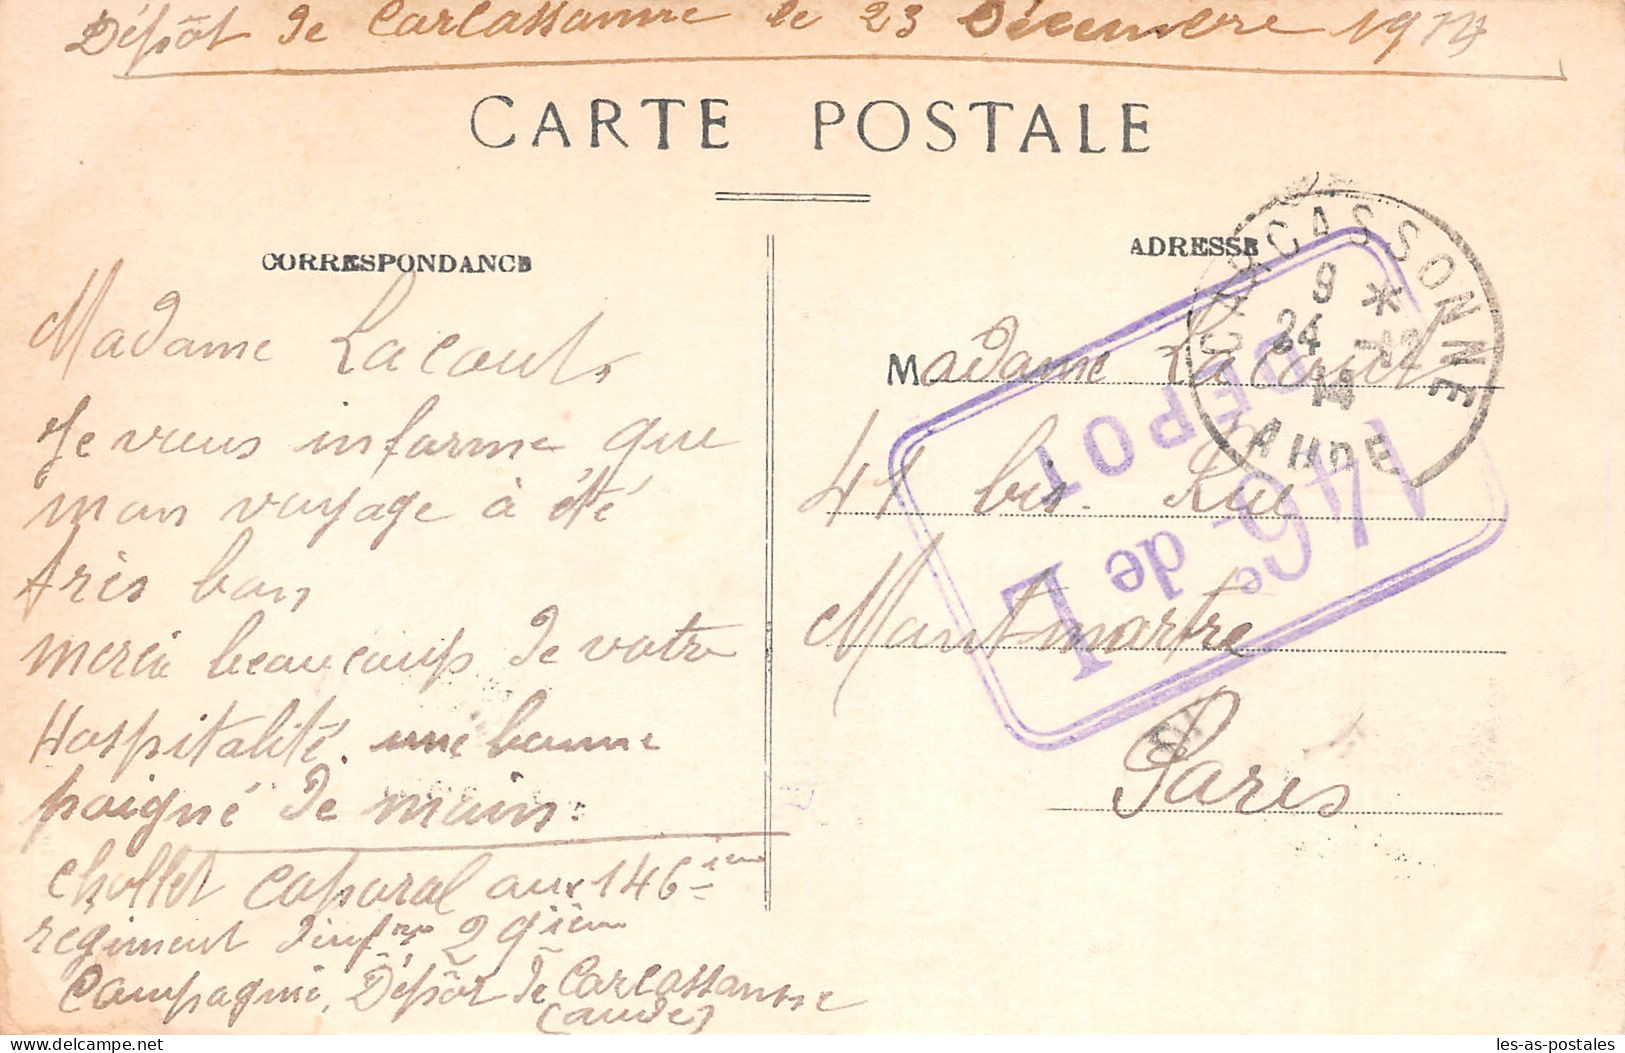 Dépôt de Carcassonne le 23 Décembre 1914
CARTE POSTALE
CORRESPONDANCE
Madame Lacouts
Je vous informe que
mon voyage à été
très bon
merci beaucoup de votre
Hospitalité. une bonne
poigné de main.
Chollet caporal aux 146 ièm
regiment d'infrie 29 ièm
Compagnie, Dépôt de Carcassonne
(aude)
ADRESSE
Madame Lacouts
41 bis. Rue
Montmartre
Paris
CARCASSONNE
9 *
24 - 12
14
AUDE
146e de L
DEPOT
les-as-postales
www.delcampe.net